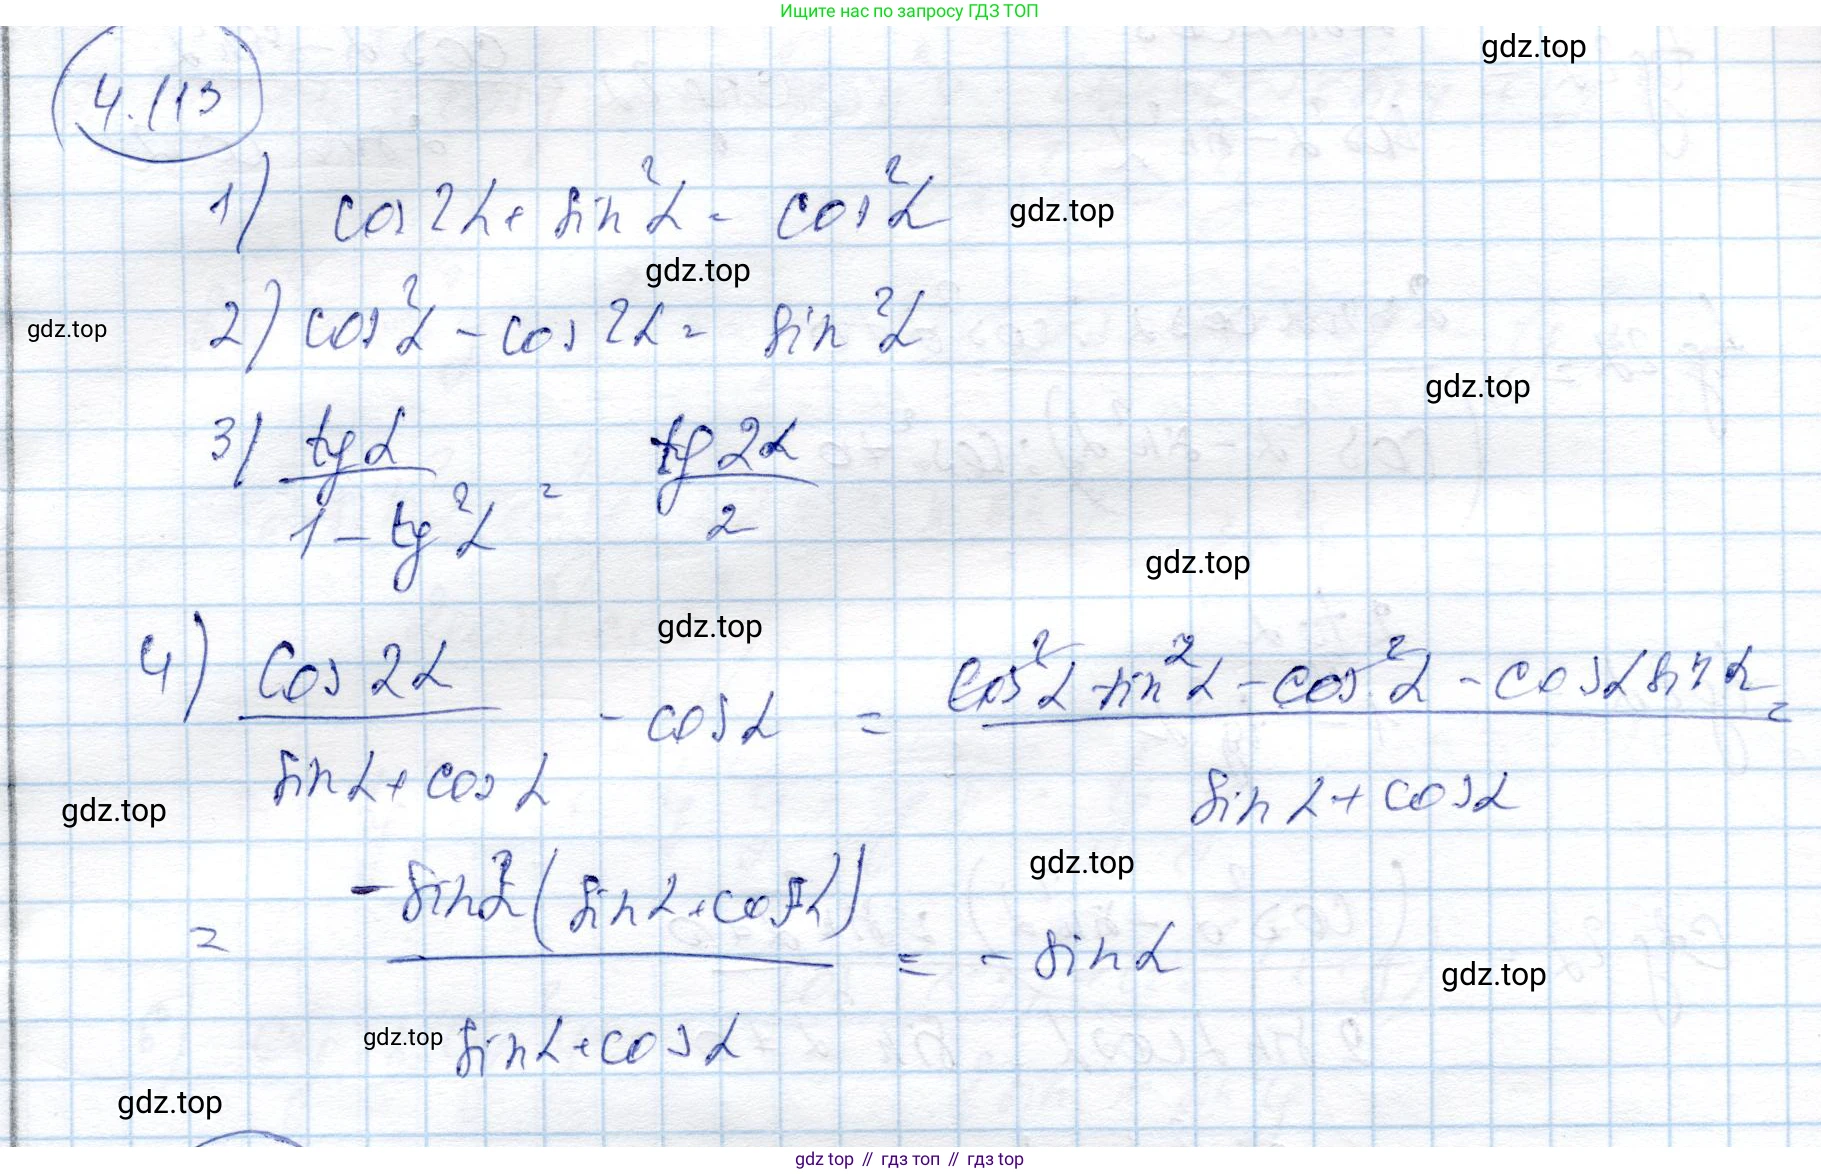 Ищите нас по запросу ГДЗ ТОП
gdz.top
4.113
1) cos 2α + sin²α = cos²α
gdz.top
gdz.top
2) cos²α - cos 2α = sin²α
gdz.top
gdz.top
3) tg α / (1 - tg²α) = tg 2α / 2
gdz.top
gdz.top
4) cos 2α / (sin α + cos α) - cos α = (cos²α - sin²α - cos²α - cos α sin α) / (sin α + cos α) =
gdz.top
gdz.top
= -sin α (sin α + cos α) / (sin α + cos α) = - sin α
gdz.top
gdz.top
gdz.top
gdz top // гдз топ // gdz top